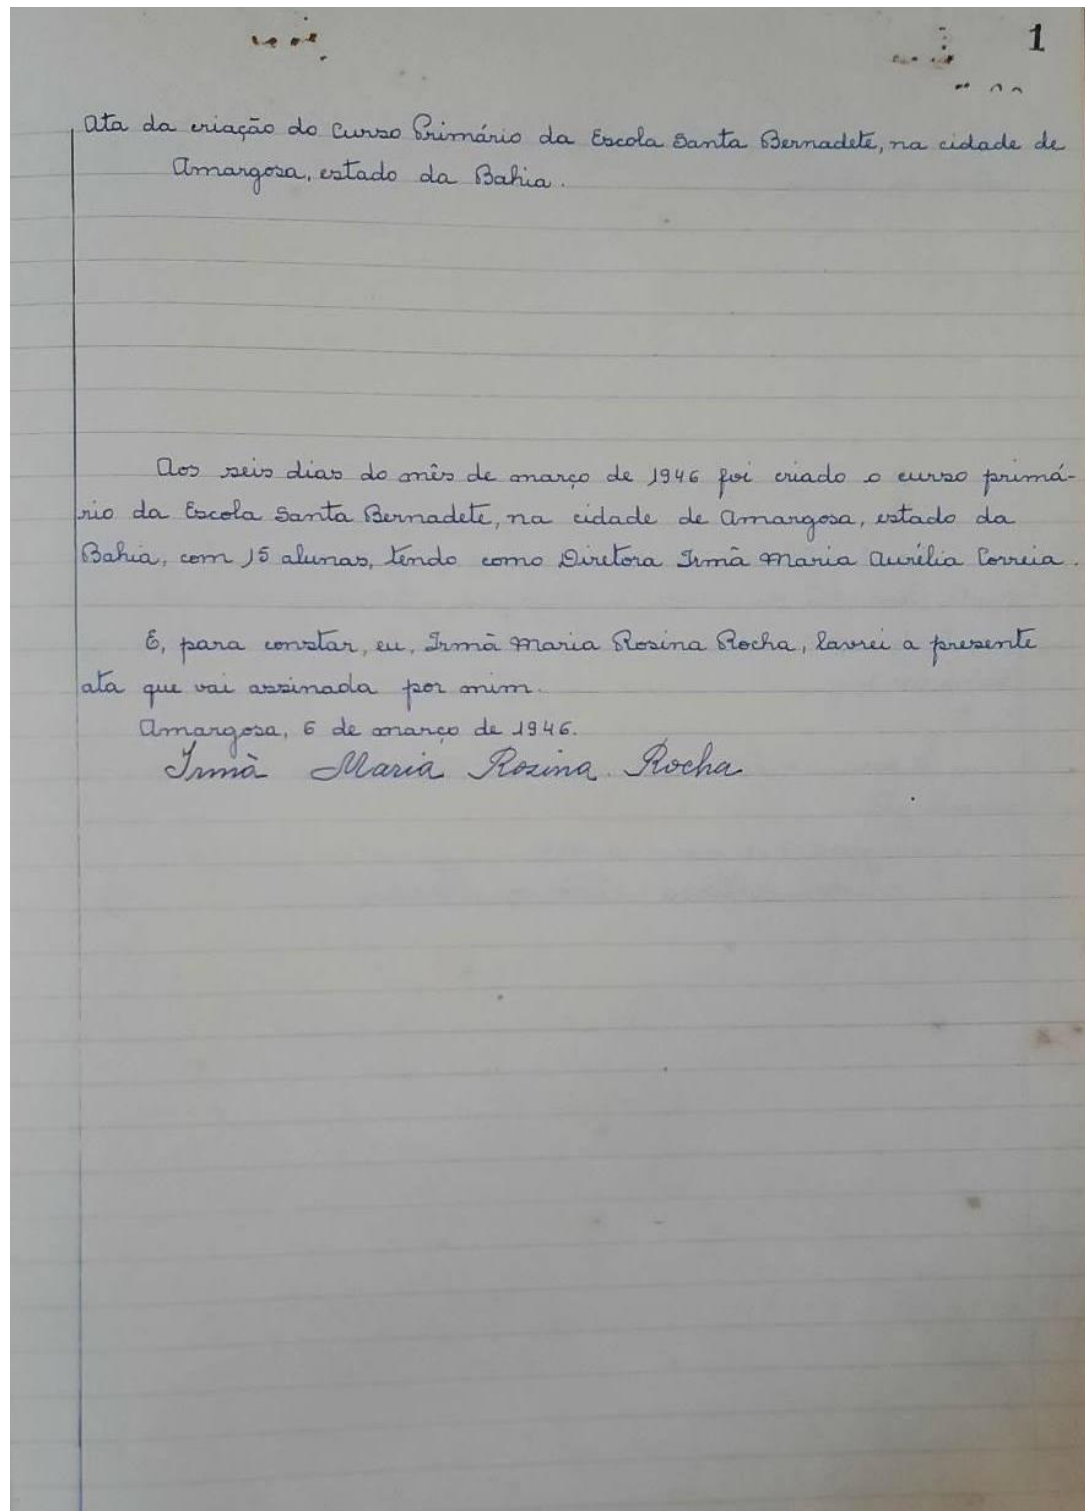 1
Ata da criação do Curso Primário da Escola Santa Bernadete, na cidade de
Amargosa, estado da Bahia.
Aos seis dias do mês de março de 1946 foi criado o curso primá-
rio da Escola Santa Bernadete, na cidade de Amargosa, estado da
Bahia, com 15 alunas, tendo como Diretora Irmã Maria Aurélia Correia.
E, para constar, eu, Irmã Maria Rosina Rocha, lavrei a presente
ata que vai assinada por mim.
Amargosa, 6 de março de 1946.
Irmã Maria Rosina Rocha